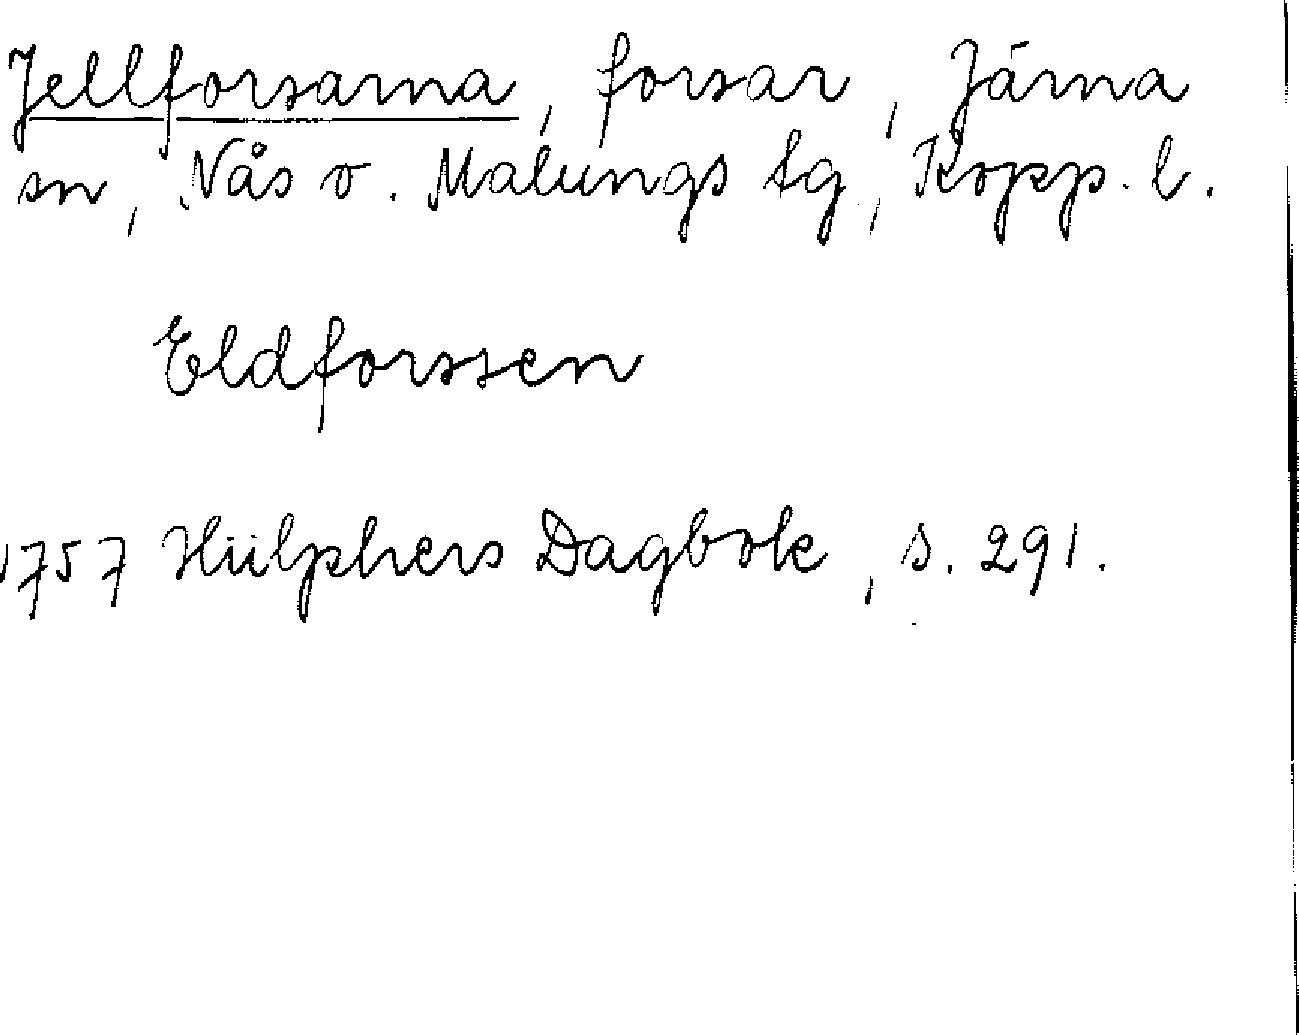 Jellforsarna, forsar, Järna
sn, Nås o. Malungs tg, Kopp. l.
Eldforssen
1757 Hülphers Dagbok, s. 291.